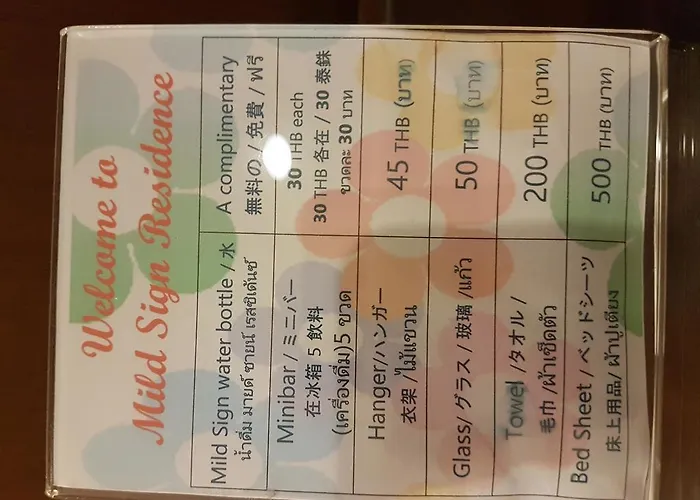 Welcome to
Mild Sign Residence
Mild Sign water bottle / 水
น้ำดื่ม มายด์ ซายน์ เรสซิเด้นซ์
A complimentary
無料の / 免費 / ฟรี
Minibar / ミニバー
在冰箱 5 飲料
(เครื่องดื่ม)5 ขวด
30 THB each
30 THB 各在 / 30 泰銖
ขวดละ 30 บาท
Hanger/ハンガー
衣架 /ไม้แขวน
45 THB (บาท)
Glass/ グラス / 玻璃 /แก้ว
50 THB (บาท)
Towel /タオル /
毛巾 /ผ้าเช็ดตัว
200 THB (บาท)
Bed Sheet / ベッドシーツ
床上用品/ ผ้าปูเตียง
500 THB (บาท)